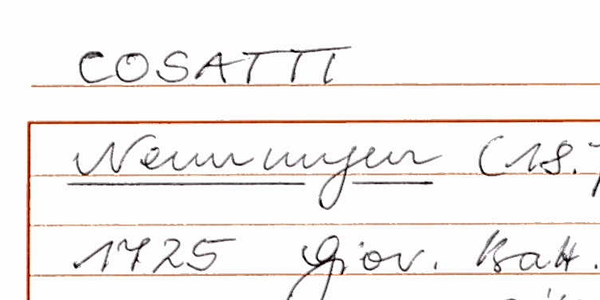 COSATTI
Nennungen (18.
1725 Giov. Batt.